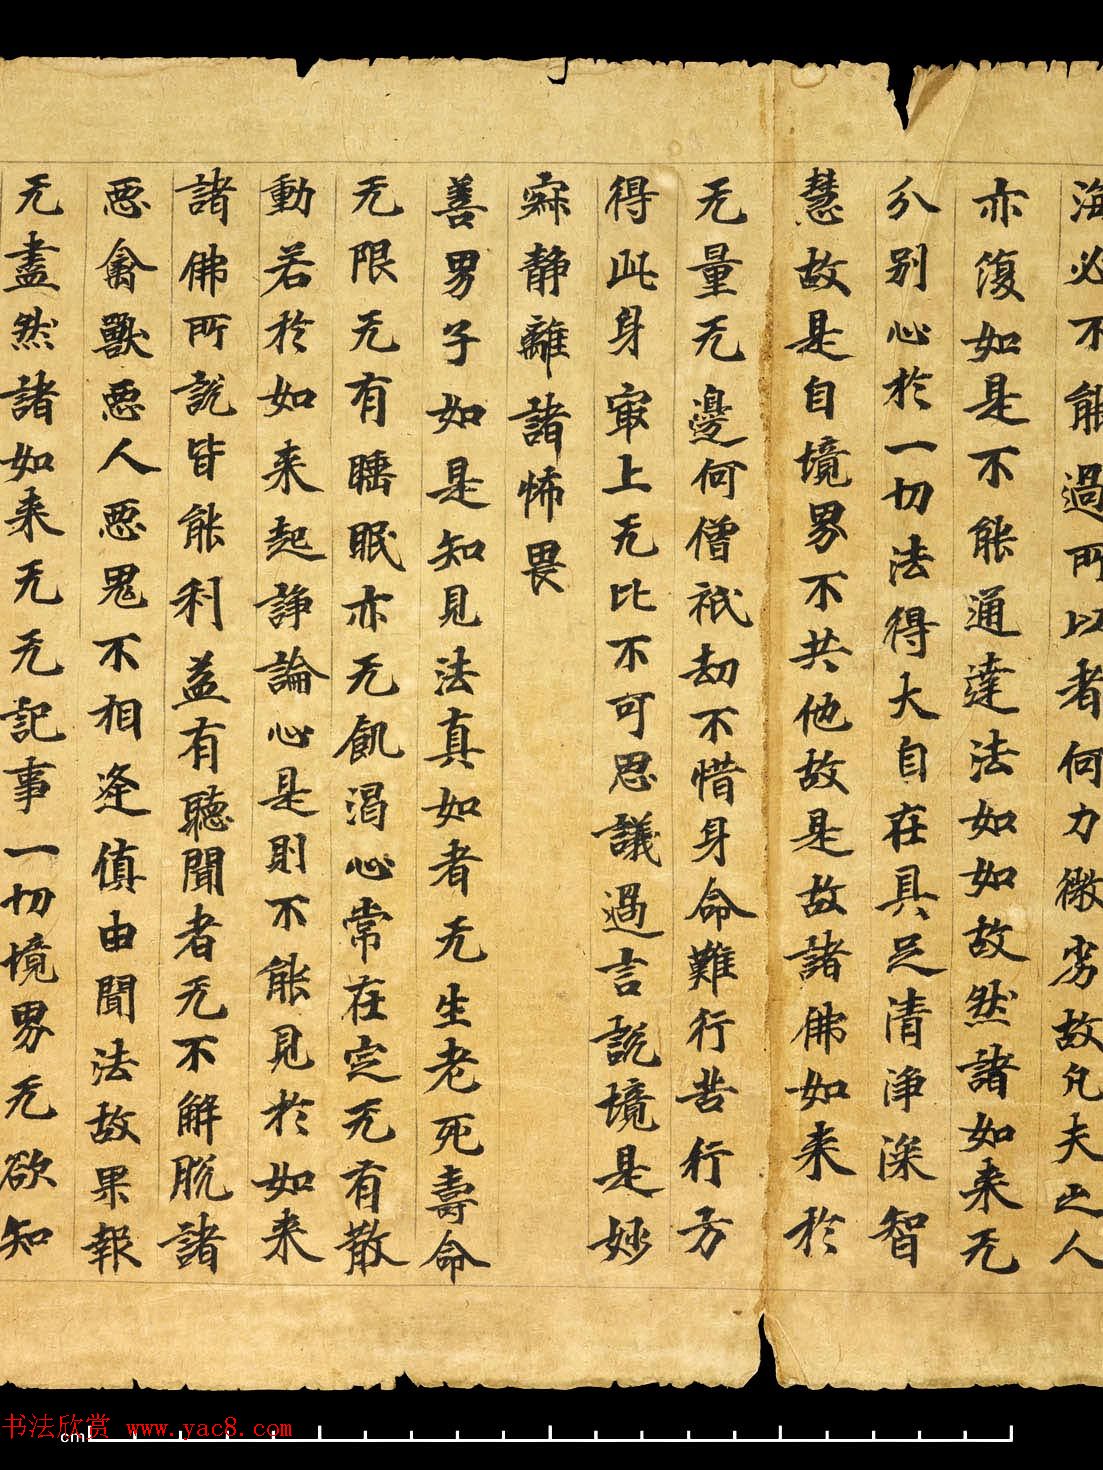 海必不能過所以者何力微劣故凡夫之人
亦復如是不能通達法如如故然諸如来无
分别心於一切法得大自在具足清淨深智
慧故是自境界不共他故是故諸佛如来於
无量无邊阿僧祇劫不惜身命難行苦行方
得此身寂上无比不可思議過言說境是妙
寂静離諸怖畏
善男子如是知見法真如者无生老死壽命
无限无有睡眠亦无飢渴心常在定无有散
動若於如来起諍論心是則不能見於如来
諸佛所說皆能利益有聽聞者无不解脫諸
惡禽獸惡人惡鬼不相逢值由聞法故果報
无盡然諸如来无无記事一切境界无欲知
书法欣赏 www.yac8.com
cm